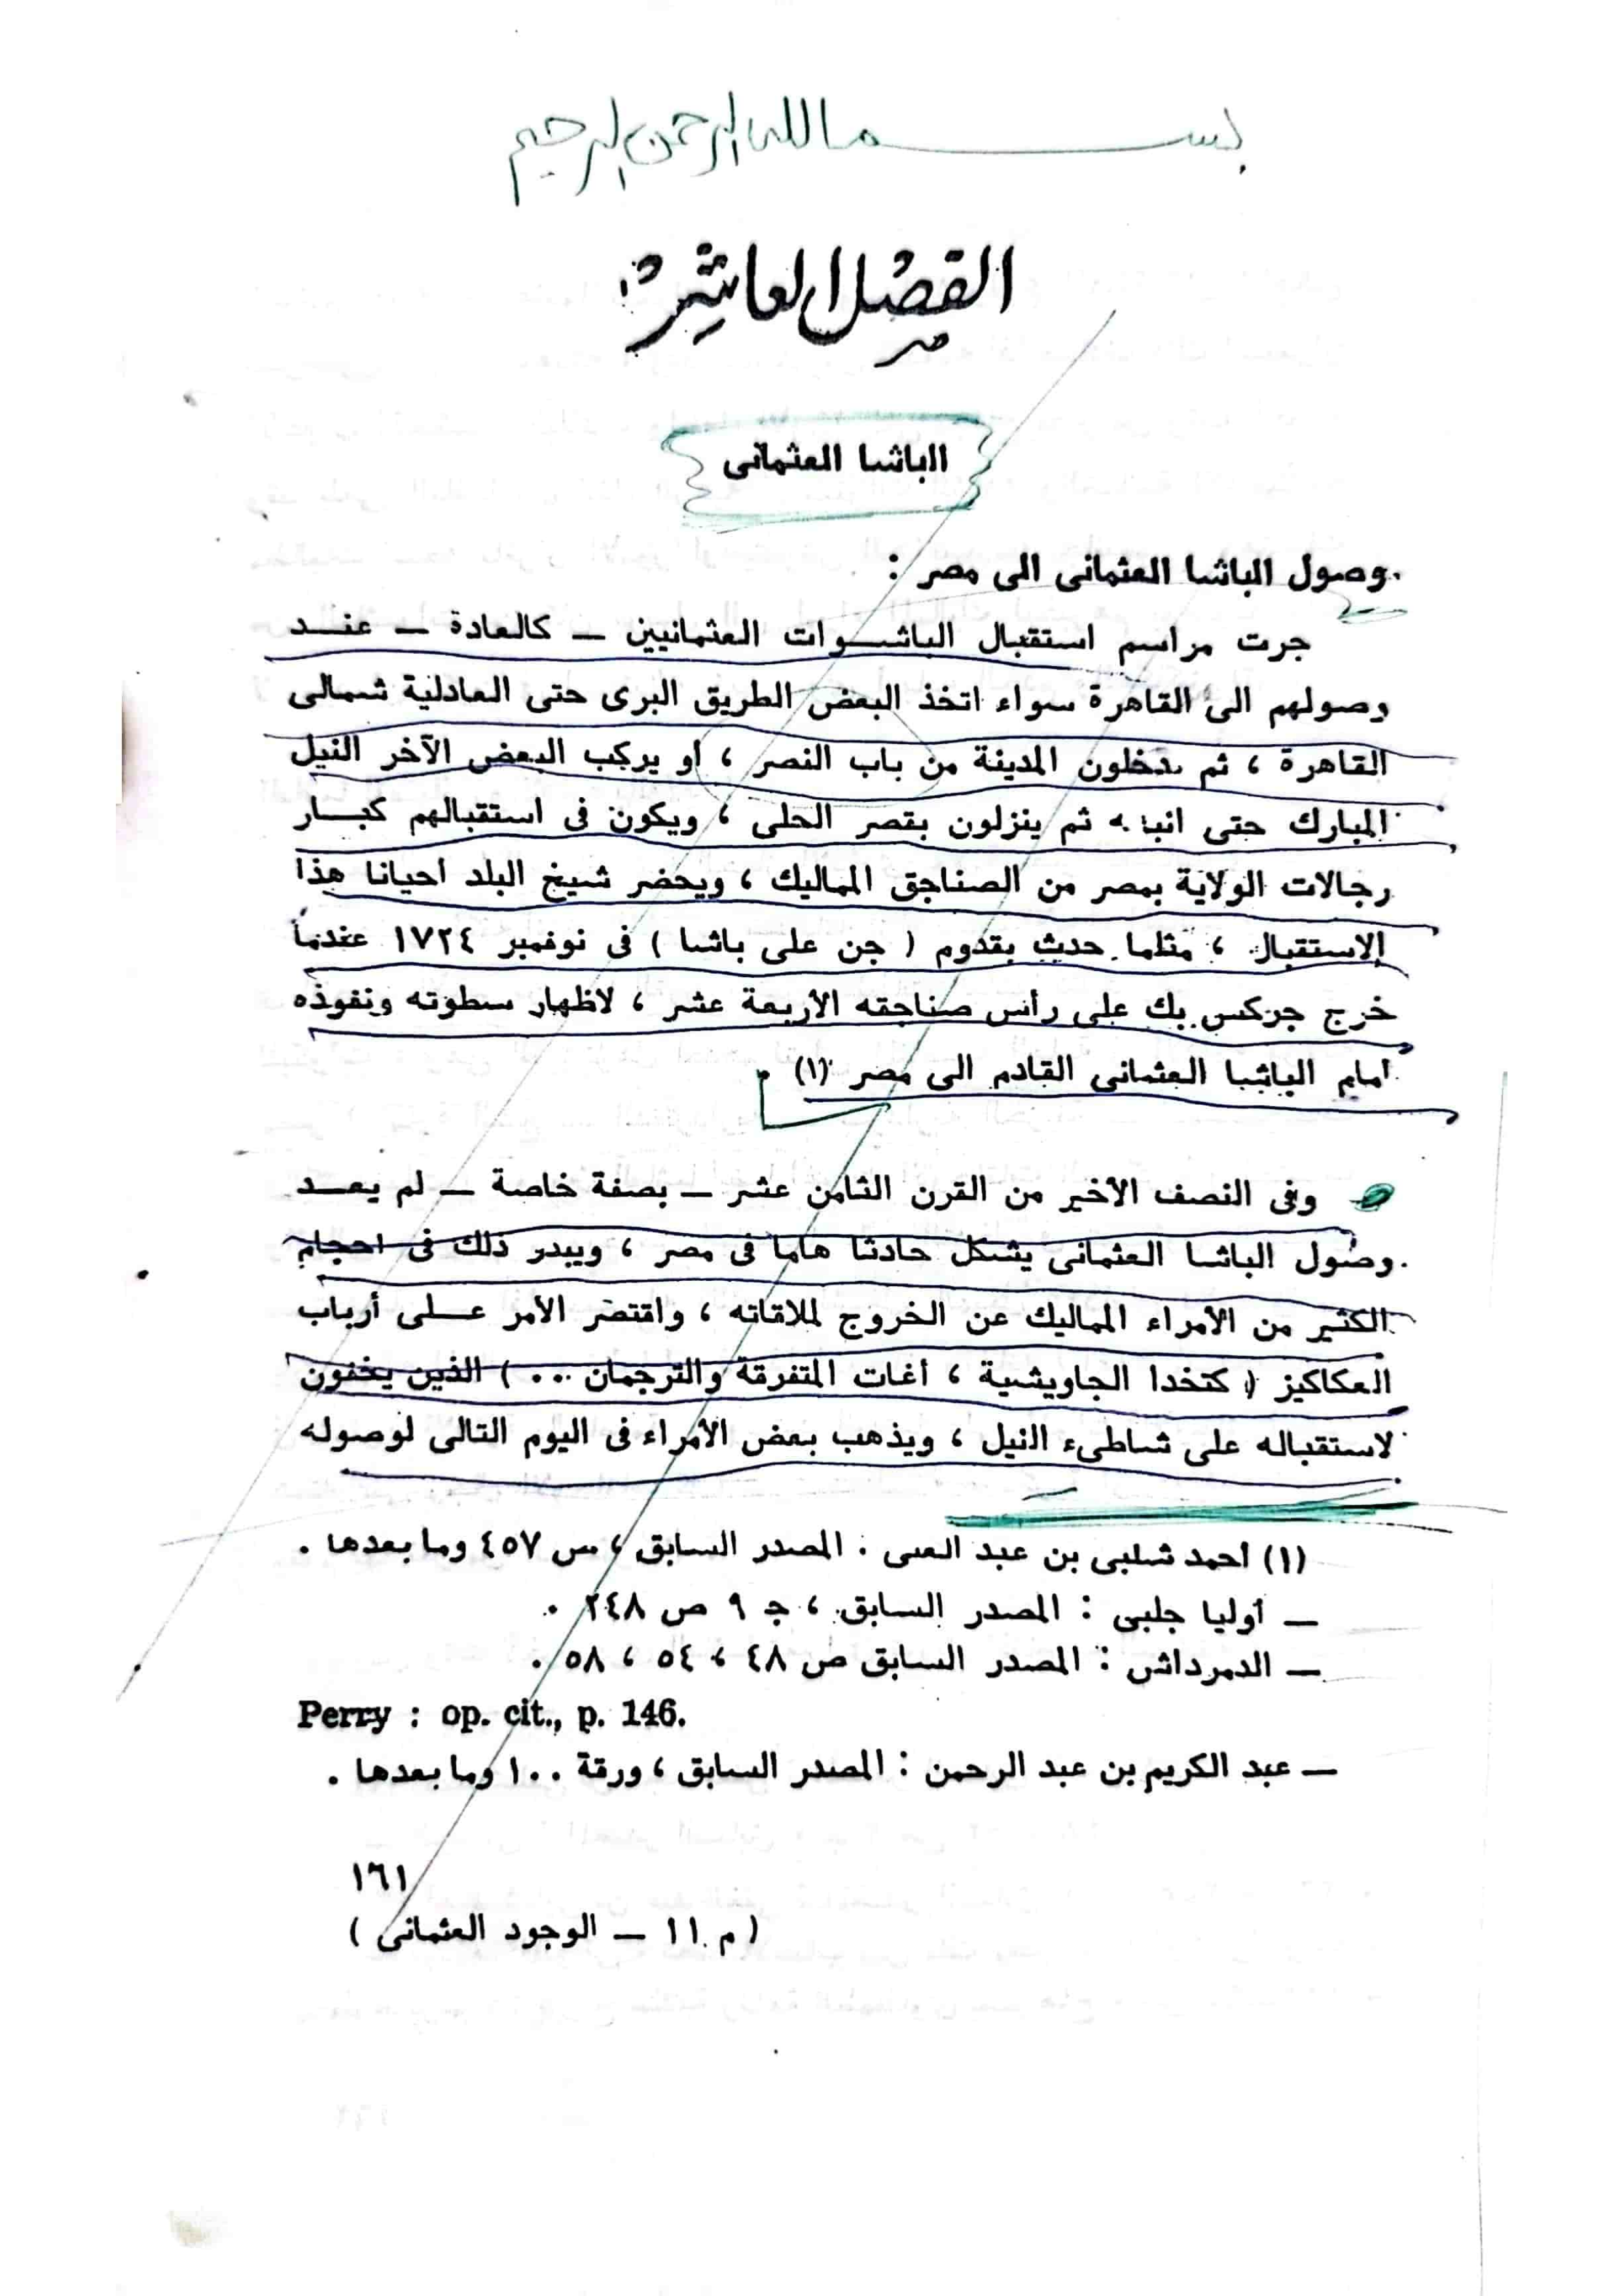 بسم الله الرحمن الرحيم
الفصل العاشر
الباشا العثمانى
وصول الباشا العثمانى الى مصر :
جرت مراسم استقبال الباشوات العثمانيين – كالعادة – عند
وصولهم الى القاهرة سواء اتخذ البعض الطريق البرى حتى العادلية شمالى
القاهرة ، ثم يدخلون المدينة من باب النصر ، أو يركب البعض الآخر النيل
المبارك حتى انبابه ثم ينزلون بقصر الحلى ، ويكون فى استقبالهم كبار
رجالات الولاية بمصر من الصناجق المماليك ، ويحضر شيخ البلد احيانا هذا
الاستقبال ، مثلما حدث بقدوم ( جن على باشا ) فى نوفمبر ١٧٢٤ عندما
خرج جركس بك على رأس صناجقه الأربعة عشر ، لاظهار سطوته ونفوذه
أمام الباشا العثمانى القادم الى مصر (١)
وفى النصف الأخير من القرن الثامن عشر – بصفة خاصة – لم يعد
وصول الباشا العثمانى يشكل حادثا هاما فى مصر ، ويبدر ذلك فى احجام
الكثير من الأمراء المماليك عن الخروج لملاقاته ، واقتصر الأمر على أرباب
العكاكيز ( كتخدا الجاويشية ، أغات المتفرقة والترجمان ... ) الذين يخفون
لاستقباله على شاطىء النيل ، ويذهب بعض الأمراء فى اليوم التالى لوصوله
(١) أحمد شلبى بن عبد : المصدر السابق ، ص ٤٥٧ وما بعدها .
– أوليا جلبى : المصدر السابق ، ج ٩ ص ٢٤٨ .
– الدمرداش : المصدر السابق ص ٤٨ ، ٥٤ ، ٥٨ .
Perry : op. cit., p. 146.
– عبد الكريم بن عبد الرحمن : المصدر السابق ، ورقة ١٠٠ وما بعدها .
١٦١
( م ١١ – الوجود العثمانى )